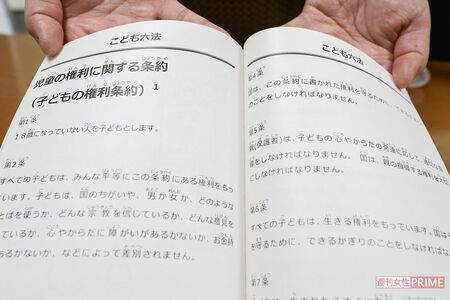 こども六法
児童の権利に関する条約
(子どもの権利条約) 1
第1条
18歳になっていない人を子どもとします。
第2条
すべての子どもは、みんな平等にこの条約にある権利をもっ
ています。子どもは、国のちがいや、男か女か、どのよう
なことばを使うか、どんな宗教を信じているか、どんな意見を
っているか、心やからだに障がいがあるかないか、お金持
あるかないか、などによって差別されません。
こども六法
第4条
国は、この条約に書かれた権利を守るために、
のことをしなければなりません。
第5条
親(保護者)は、子どもの心やからだの発達に応じて、
をしなければなりません。国は、親の指導する権利を
にしなければなりません。
第6条
すべての子どもは、生きる権利をもっています。国は
を守るために、できるかぎりのことをしなければ
第7条
週刊女性PRIME